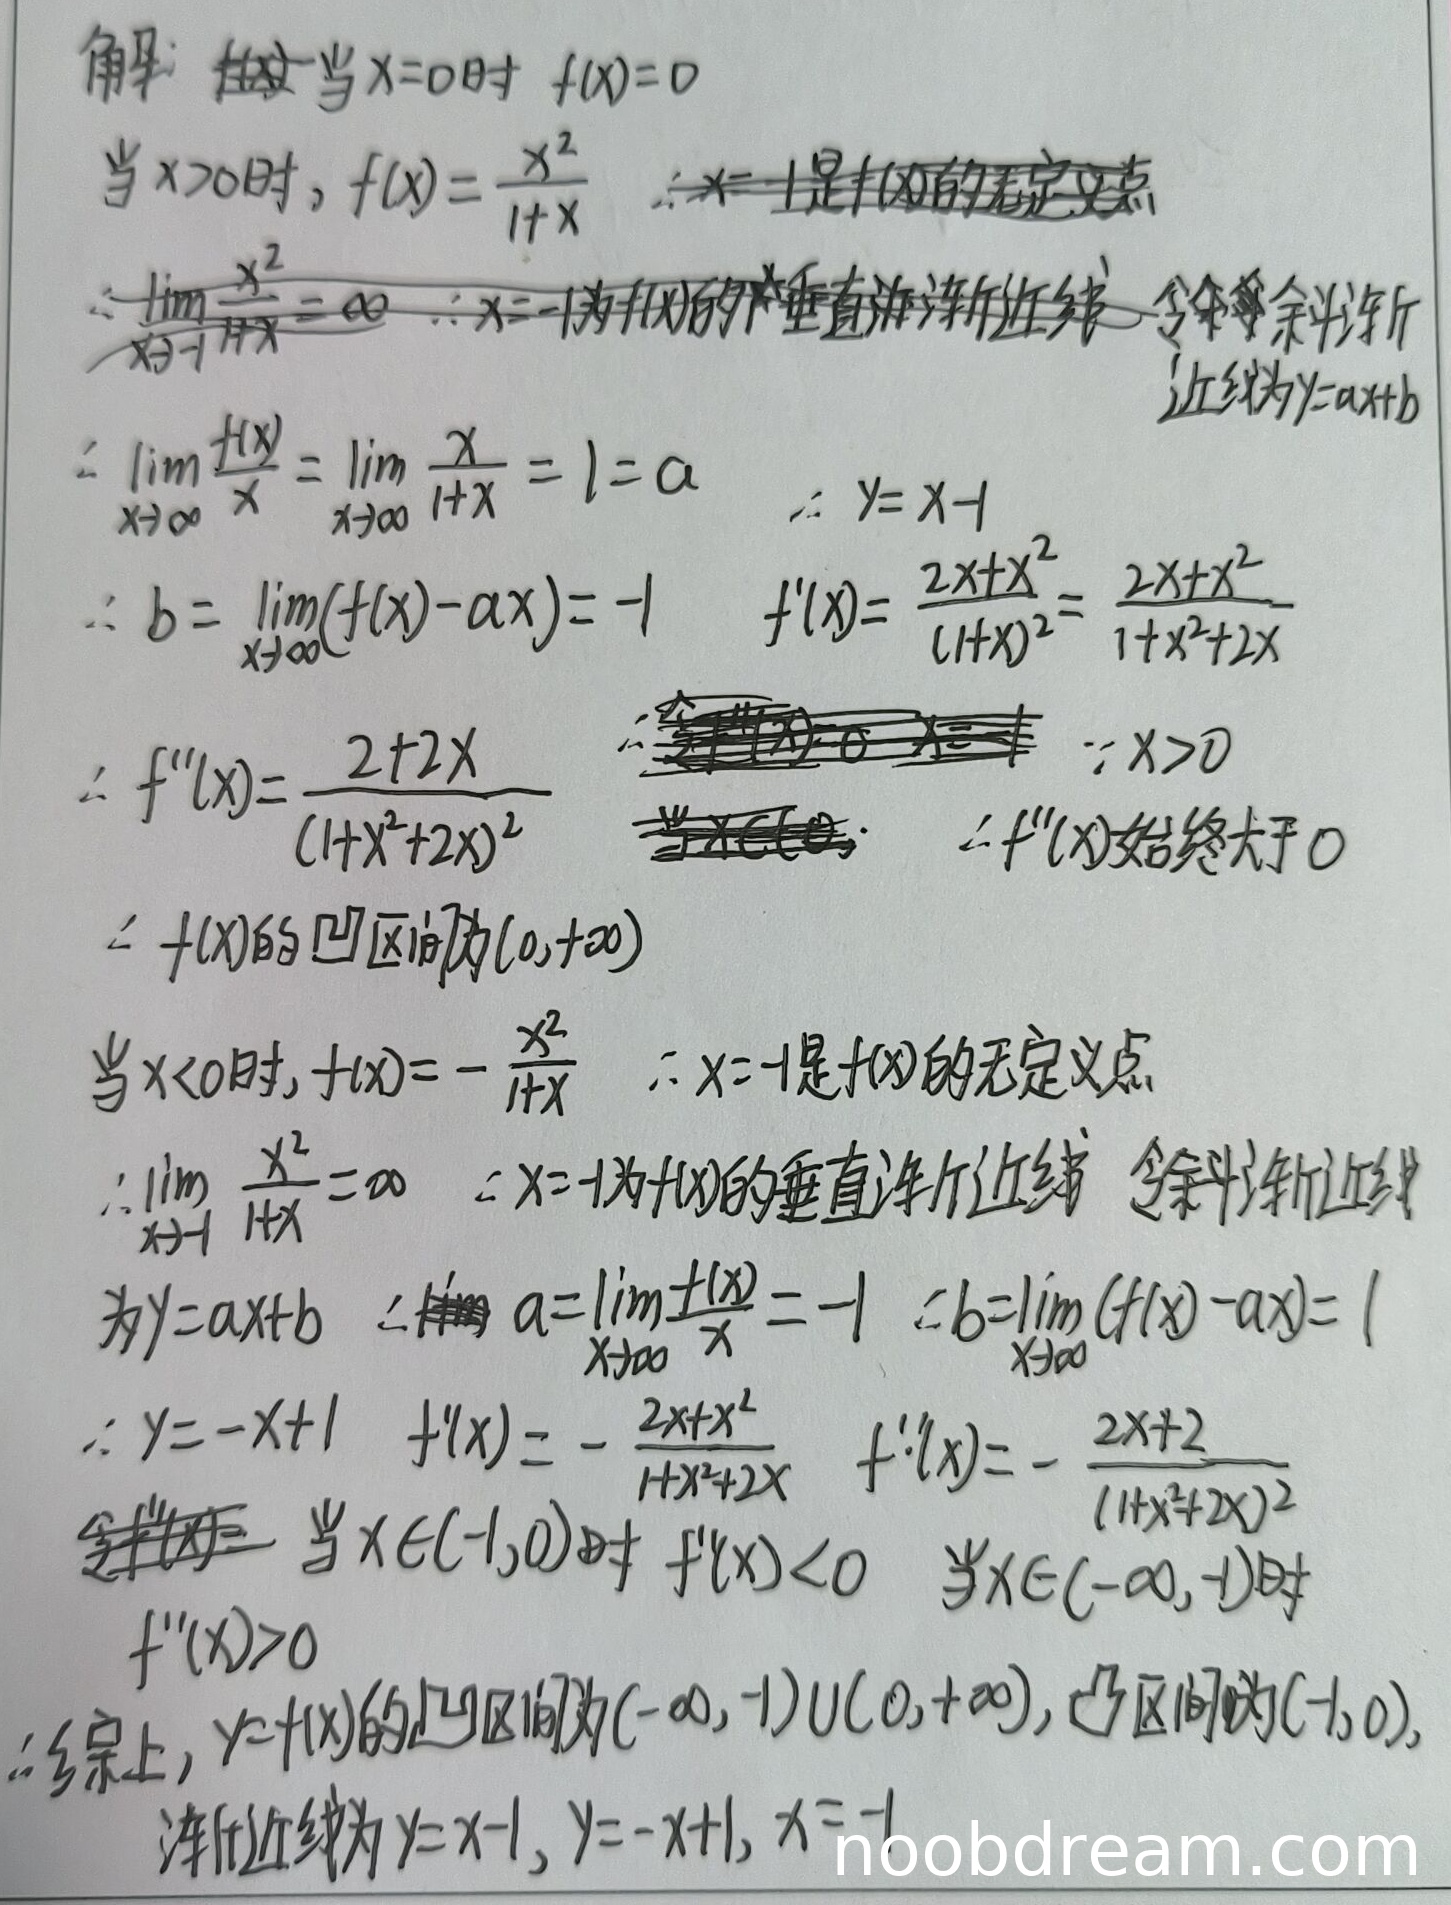 解: 当x=0时 f(x)=0
当x>0时, f(x)=x²/(1+x) ∴x=-1是f(x)的无定义点
∴lim(x→-1) x²/(1+x)=∞ ∴x=-1为f(x)的垂直渐近线 令斜渐
近线为y=ax+b
∴ lim(x→∞) f(x)/x = lim(x→∞) x/(1+x) = 1 = a ∴ y=x-1
∴ b= lim(x→∞)(f(x)-ax)=-1 f'(x)=(2x+x²)/(1+x)²=(2x+x²)/(1+x²+2x)
∴ f''(x)=(2+2x)/(1+x²+2x)² ∵x>0
∴f''(x)始终大于0
∴ f(x)的凹区间为(0,+∞)
当x<0时, f(x)=-x²/(1+x) ∴x=-1是f(x)的无定义点
∴lim(x→-1) x²/(1+x)=∞ ∴x=-1为f(x)的垂直渐近线 令斜渐近线
为y=ax+b ∴ a=lim(x→∞) f(x)/x=-1 ∴b=lim(x→∞)(f(x)-ax)=1
∴y=-x+1 f'(x)=-(2x+x²)/(1+x²+2x) f''(x)=-(2x+2)/(1+x²+2x)²
当x∈(-1,0)时 f''(x)<0 当x∈(-∞,-1)时
f''(x)>0
∴综上, y=f(x)的凹区间为(-∞,-1)∪(0,+∞), 凸区间为(-1,0),
渐近线为y=x-1, y=-x+1, x=-1
noobdream.com